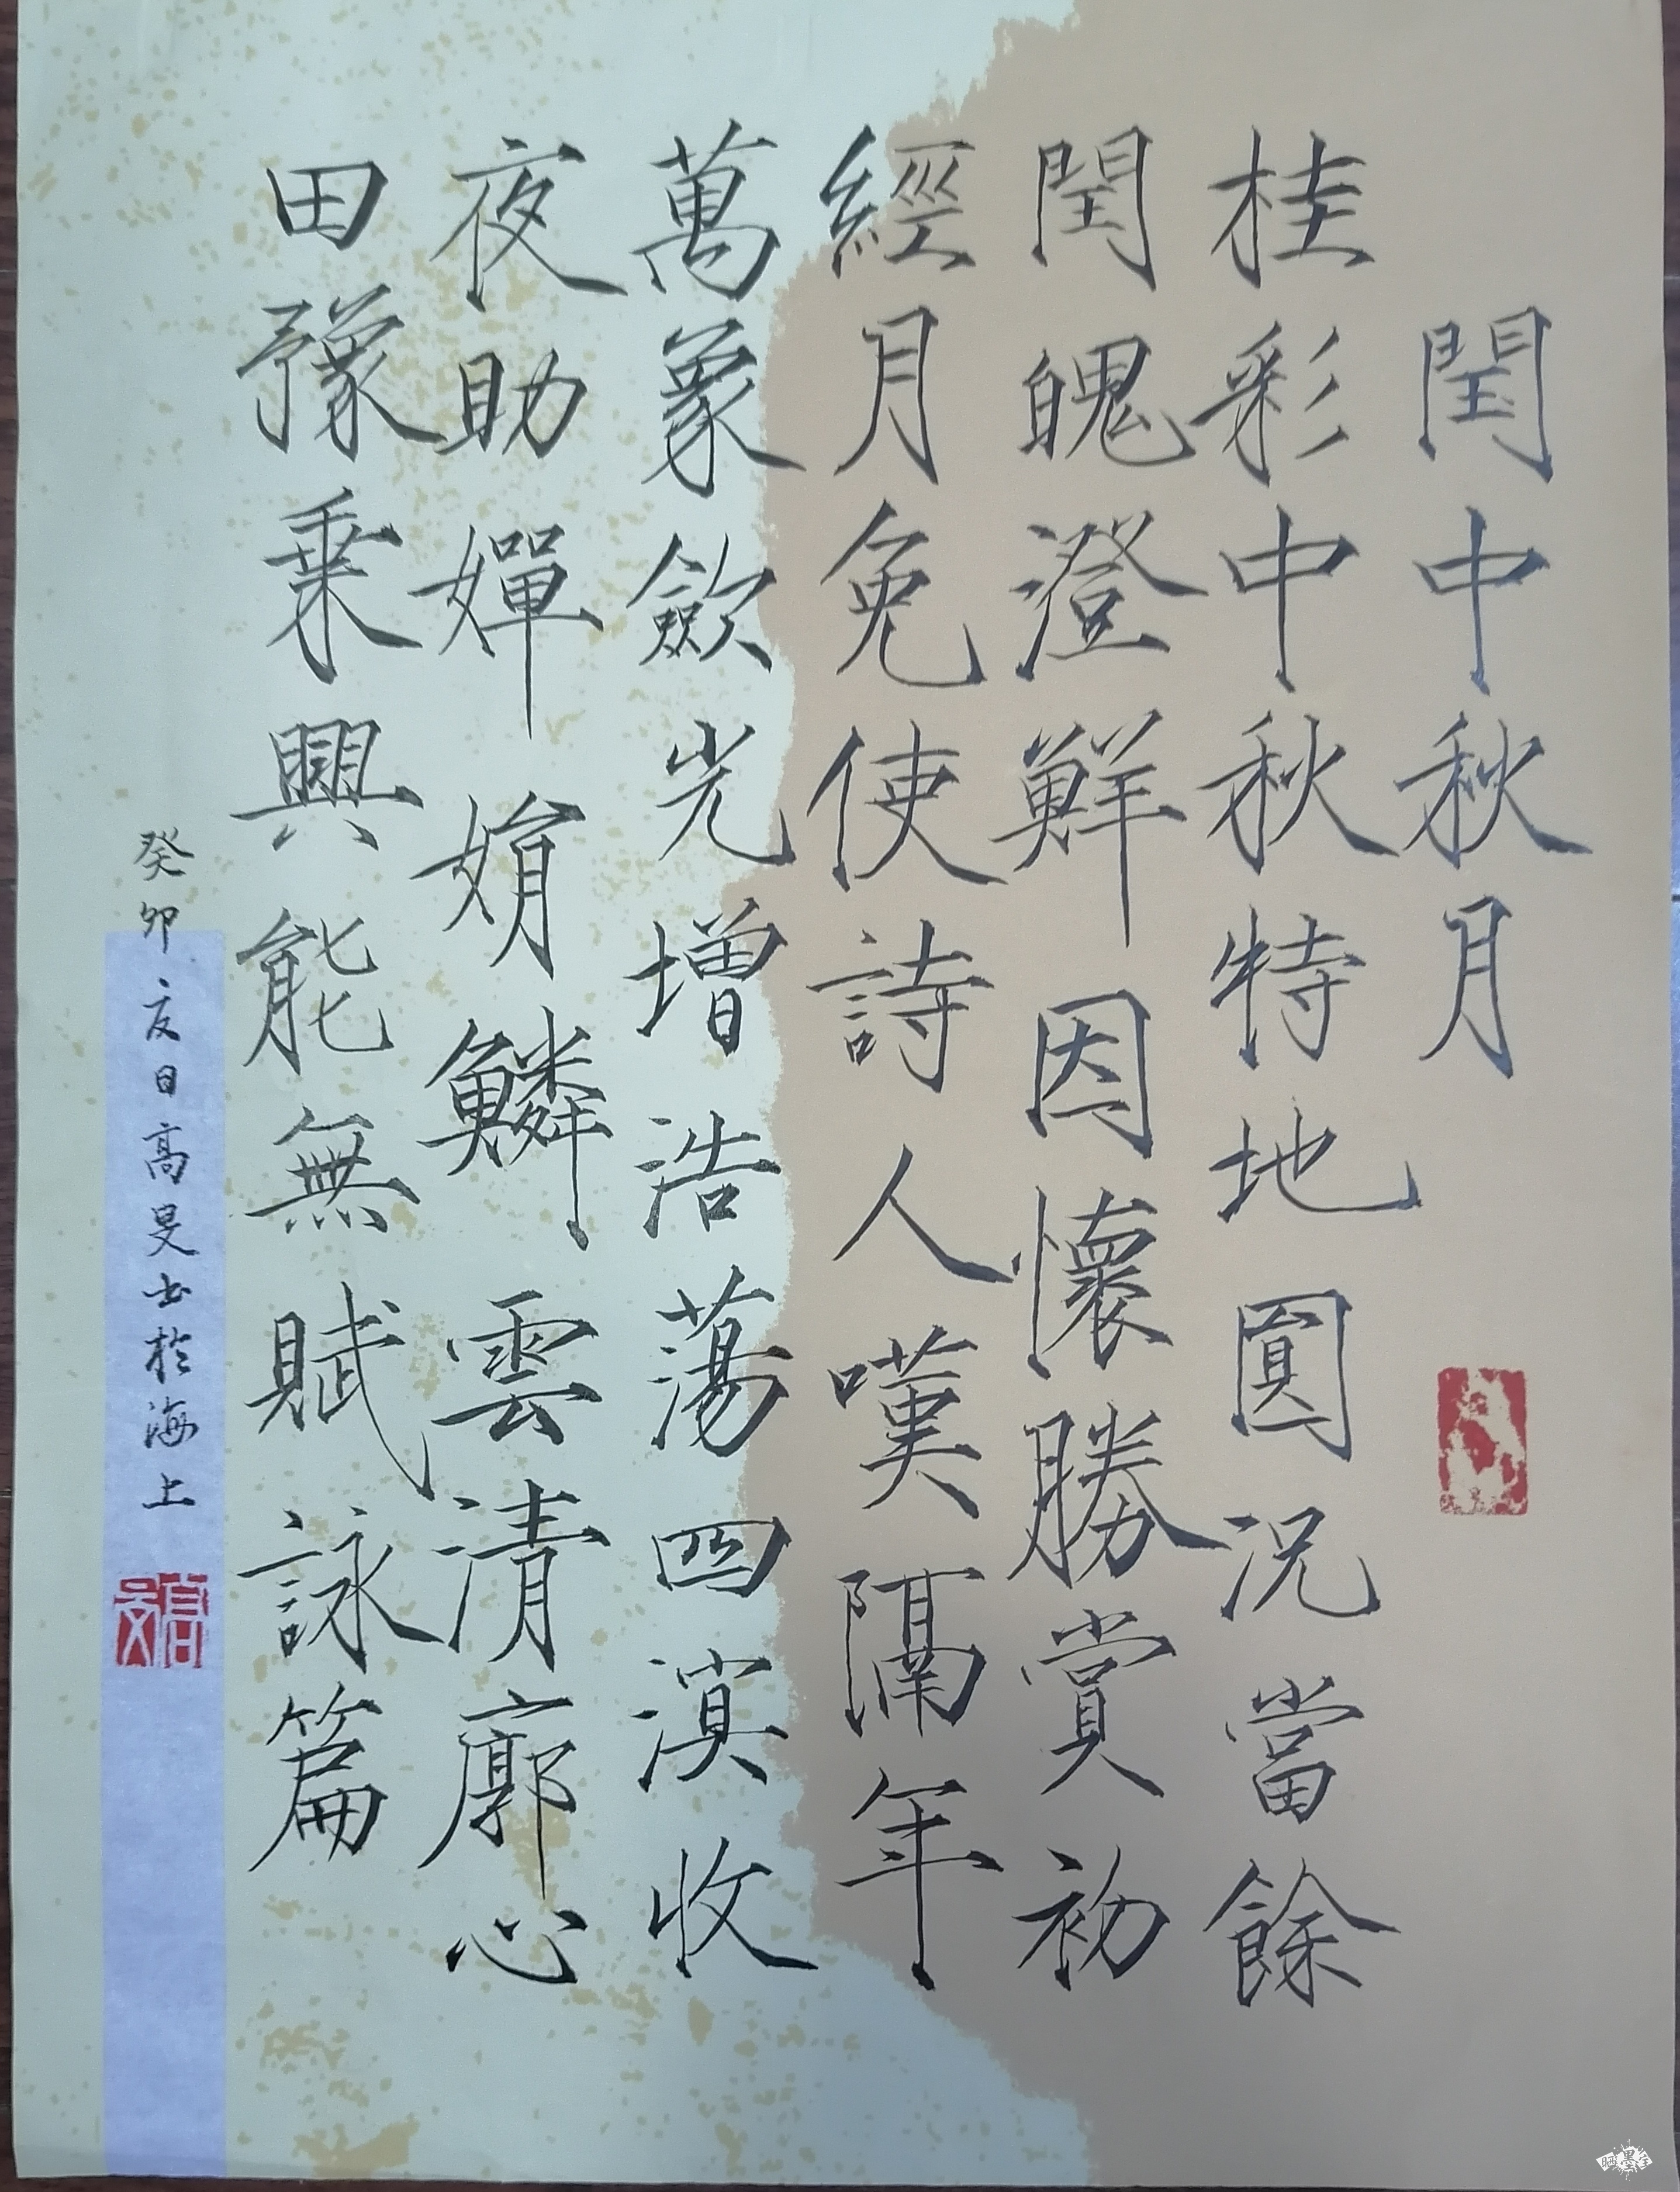 閏中秋月
桂彩中秋特地圓況當餘
閏魄澄鮮因懷勝賞初
經月免使詩人嘆隔年
萬象斂光增浩蕩四溟收
夜助嬋娟鱗雲清廓心
田豫乘興能無賦詠篇
癸卯夏日高旻书於海上